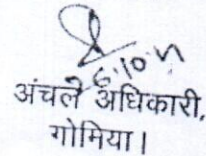 6.10.
अंचल अधिकारी,
गोमिया।